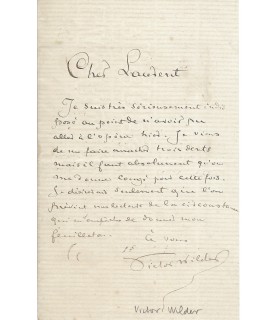 Cher Laurent
Je suis très sérieusement indis
posé au point de n'avoir pu
aller à l'opéra hier. Je viens
de me faire arracher trois dents
mais il faut absolument qu'on
me donne congé pour cette fois.
Je désirerais seulement que l'on
prévînt de la circonstance
qui m'empêche de donner mon
feuilleton.
à vous
Victor Wilder
Victor Wilder